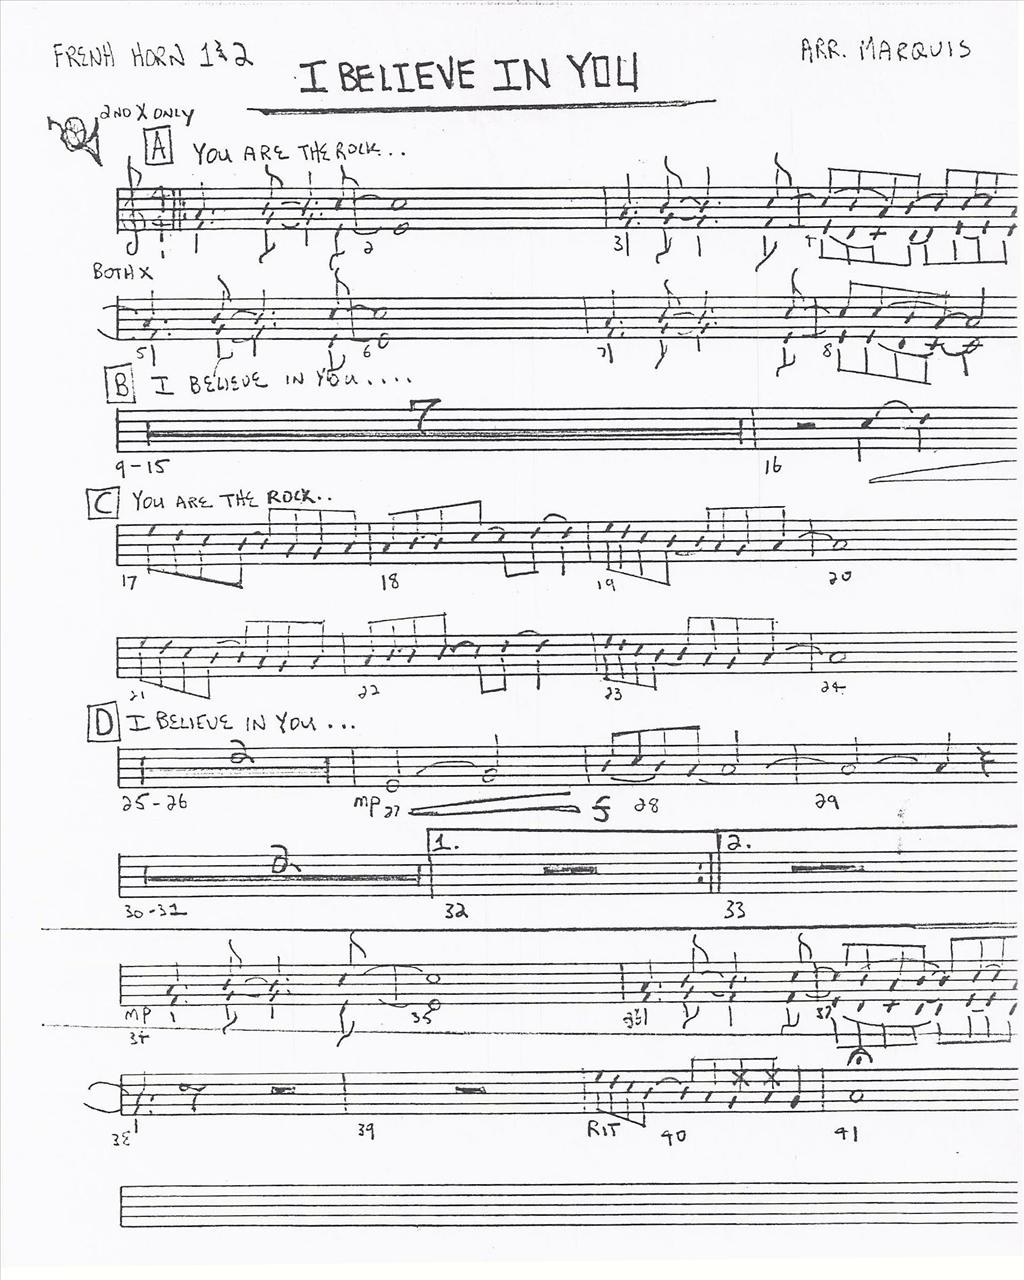 FRENH HORN 1&2
I BELIEVE IN YOU
ARR. MARQUIS
2ND X ONLY
A YOU ARE THE ROCK...
2 3 4
BOTH X
5 6 7 8
B I BELIEVE IN YOU....
7
9-15 16
C YOU ARE THE ROCK..
17 18 19 20
21 22 23 24
D I BELIEVE IN YOU...
2
25-26 mp 27 f 28 29
2 1. 2.
30-31 32 33
MP 35 37
34
38 39 RIT 40 41